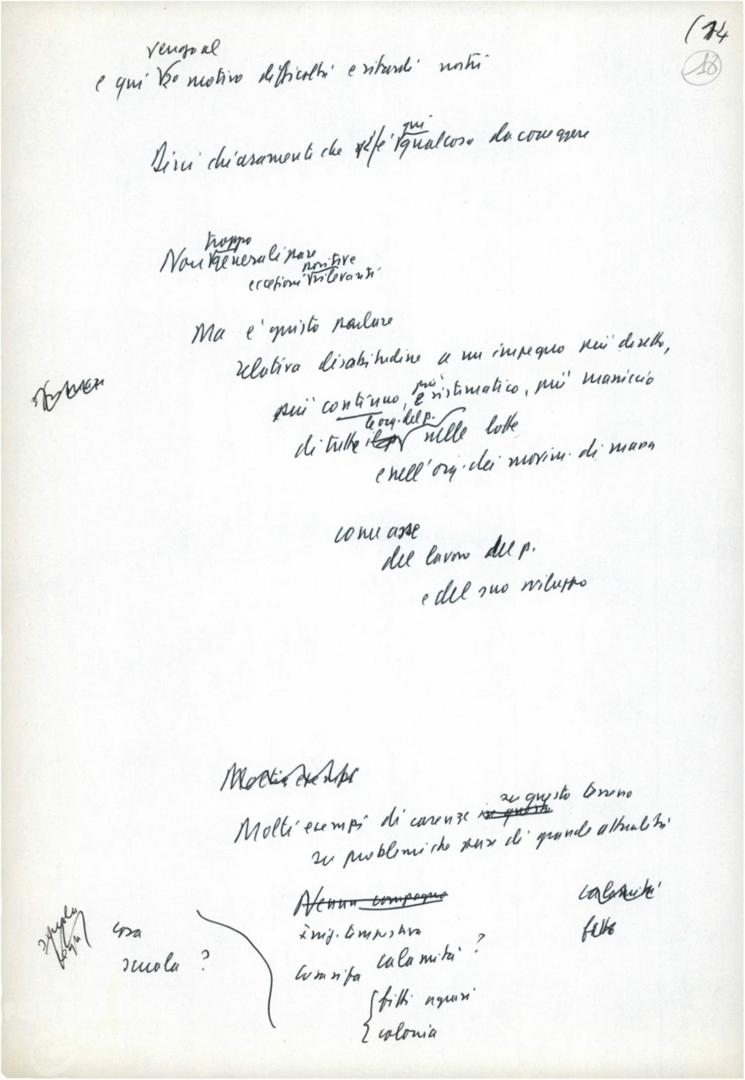 (14
18
vengo al
e qui motivo difficoltà e ritardi nostri
Dirci chiaramente che c'è qui qualcosa da correggere
Non troppo generalizzare
eccezioni positive rilevanti
Ma è questo
relativa disabitudine a un impegno più diretto,
più continuo, più sistematico, più
di tutte le org. del p. nelle lotte
e nell'org. dei movim. di massa
come asse
del lavoro del p.
e del suo sviluppo
Molti esempi
Molti esempi di carenze su questo terreno
su problemi che pure di grande attualità
Nessuna campagna
calamità
fitti
cosa
scuola ?
calamità ?
fitti agrari
colonia